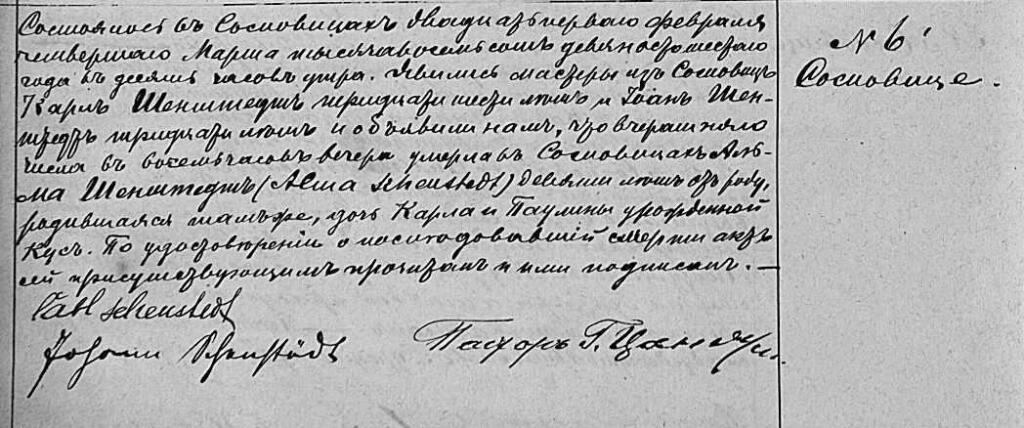 Состоялось въ Сосновицахъ двадцать перваго февраля
четвертаго Марта тысяча восемьсотъ девяносто шестаго
года въ десять часовъ утра. Явились мастеры изъ Сосновицъ
Карлъ Шенштедтъ тридцати шести лѣтъ и Іоанъ Шен-
штедтъ тридцати лѣтъ и объявили намъ, что вчерашняго
числа въ восемь часовъ вечера умерла въ Сосновицахъ Аль-
ма Шенштедтъ (Alma Schenstedt) девяти лѣтъ отъ роду,
родившаяся тамъже, дочь Карла и Паулины урожденной
Кусъ. По удостовѣреніи о послѣдовавшей смерти актъ
сей присутствующимъ прочитанъ и ими подписанъ. —
Carl Schenstedt
Johann Schenstädt
Пасторъ Г.
№ 6
Сосновице.